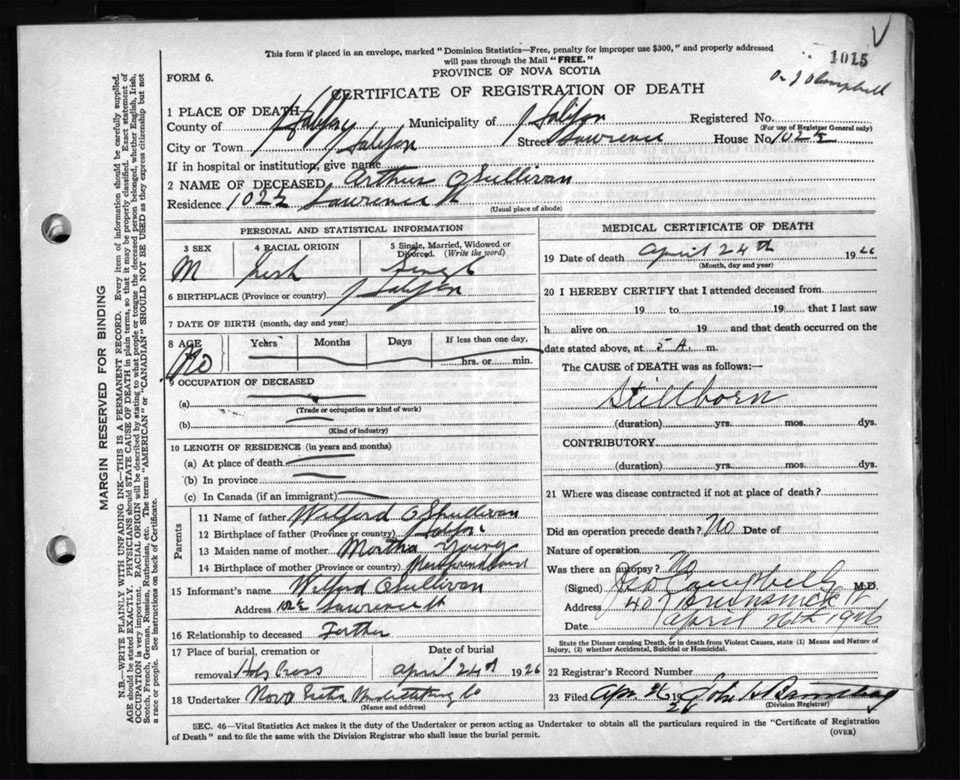 This form if placed in an envelope, marked "Dominion Statistics—Free, penalty for improper use $300," and properly addressed
will pass through the Mail "FREE."
1015
PROVINCE OF NOVA SCOTIA
FORM 6.
CERTIFICATE OF REGISTRATION OF DEATH
Campbell
1 PLACE OF DEATH
County of Halifax Municipality of Halifax Registered No.
(For use of Registrar General only)
City or Town Halifax Street Lawrence House No. 1022
If in hospital or institution, give name
2 NAME OF DECEASED Arthur OSullivan
Residence 1022 Lawrence St
(Usual place of abode)
PERSONAL AND STATISTICAL INFORMATION
3 SEX 4 RACIAL ORIGIN 5 Single, Married, Widowed or Divorced. (Write the word)
M Irish Single
6 BIRTHPLACE (Province or country) Halifax
7 DATE OF BIRTH (month, day and year)
8 AGE Years Months Days If less than one day,
No hrs. or min.
9 OCCUPATION OF DECEASED
(a)
(Trade or occupation or kind of work)
(b)
(Kind of industry)
10 LENGTH OF RESIDENCE (in years and months)
(a) At place of death
(b) In province
(c) In Canada (if an immigrant)
Parents
11 Name of father Wilford OSullivan
12 Birthplace of father (Province or country) Halifax
13 Maiden name of mother Martha Young
14 Birthplace of mother (Province or country)
15 Informant's name Wilford OSullivan
Address 1022 Lawrence St
16 Relationship to deceased Father
17 Place of burial, cremation or Date of burial
removal Holy Cross April 24th 1926
18 Undertaker Nova Scotia Undertaking Co
(Name and address)
MEDICAL CERTIFICATE OF DEATH
19 Date of death April 24th 1926
(Month, day and year)
20 I HEREBY CERTIFY that I attended deceased from
19 to 19 that I last saw
h alive on 19 and that death occurred on
date stated above, at 5 A. m.
The CAUSE of DEATH was as follows:—
Stillborn
(duration) yrs. mos. dys.
CONTRIBUTORY
(duration) yrs. mos. dys.
21 Where was disease contracted if not at place of death?
Did an operation precede death? No Date of
Nature of operation
Was there an autopsy? No
(Signed) Campbell M.D.
Address 407 Brunswick St
Date April 26th 1926
State the Disease causing Death, or in death from Violent Causes, state (1) Means and Nature of
Injury, (2) whether Accidental, Suicidal or Homicidal.
22 Registrar's Record Number
23 Filed Apr. 26 1926 John
(Division Registrar)
SEC. 46—Vital Statistics Act makes it the duty of the Undertaker or person acting as Undertaker to obtain all the particulars required in the "Certificate of Registration
of Death" and to file the same with the Division Registrar who shall issue the burial permit.
(OVER)
MARGIN RESERVED FOR BINDING
N.B.—WRITE PLAINLY WITH UNFADING INK—THIS IS A PERMANENT RECORD. Every item of information should be carefully supplied.
AGE should be stated EXACTLY. PHYSICIANS should STATE CAUSE OF DEATH in plain terms, so that it may be properly classified. Exact statement of
OCCUPATION is very important. RACIAL ORIGIN will be described by stating to what people or tongue the deceased person belonged, whether English, Irish,
Scotch, French, German, Russian, Ruthenian, etc. The terms "AMERICAN" or "CANADIAN" SHOULD NOT BE USED as they express citizenship but not
a race or people. See instructions on back of Certificate.